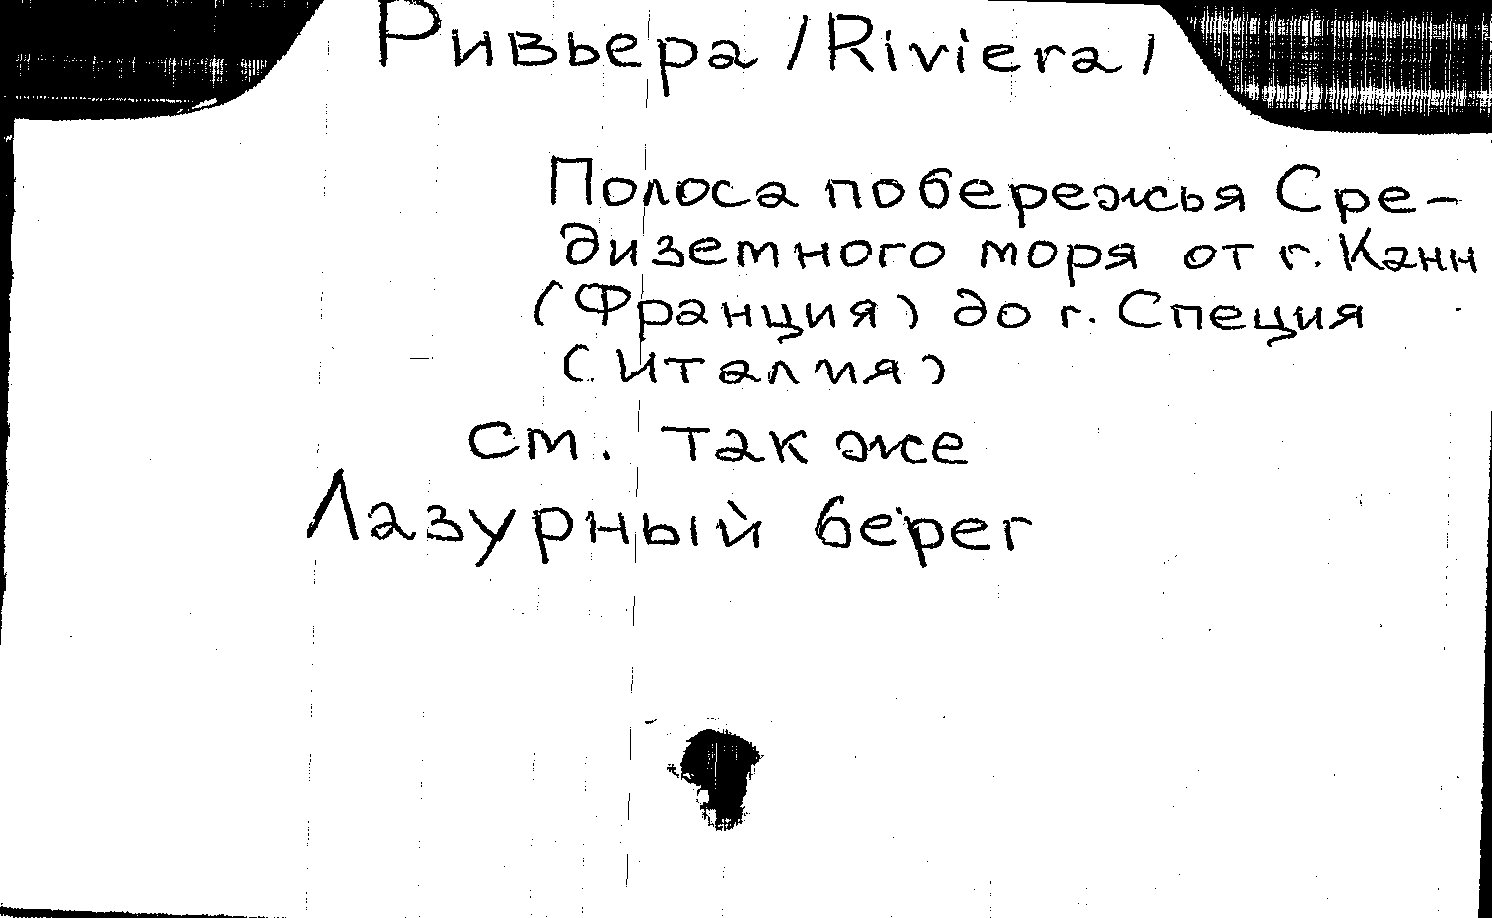 Ривьера /Riviera/
Полоса побережья Сре-
диземного моря от г. Канн
(Франция) до г. Специя
(Италия)
см. также
Лазурный берег